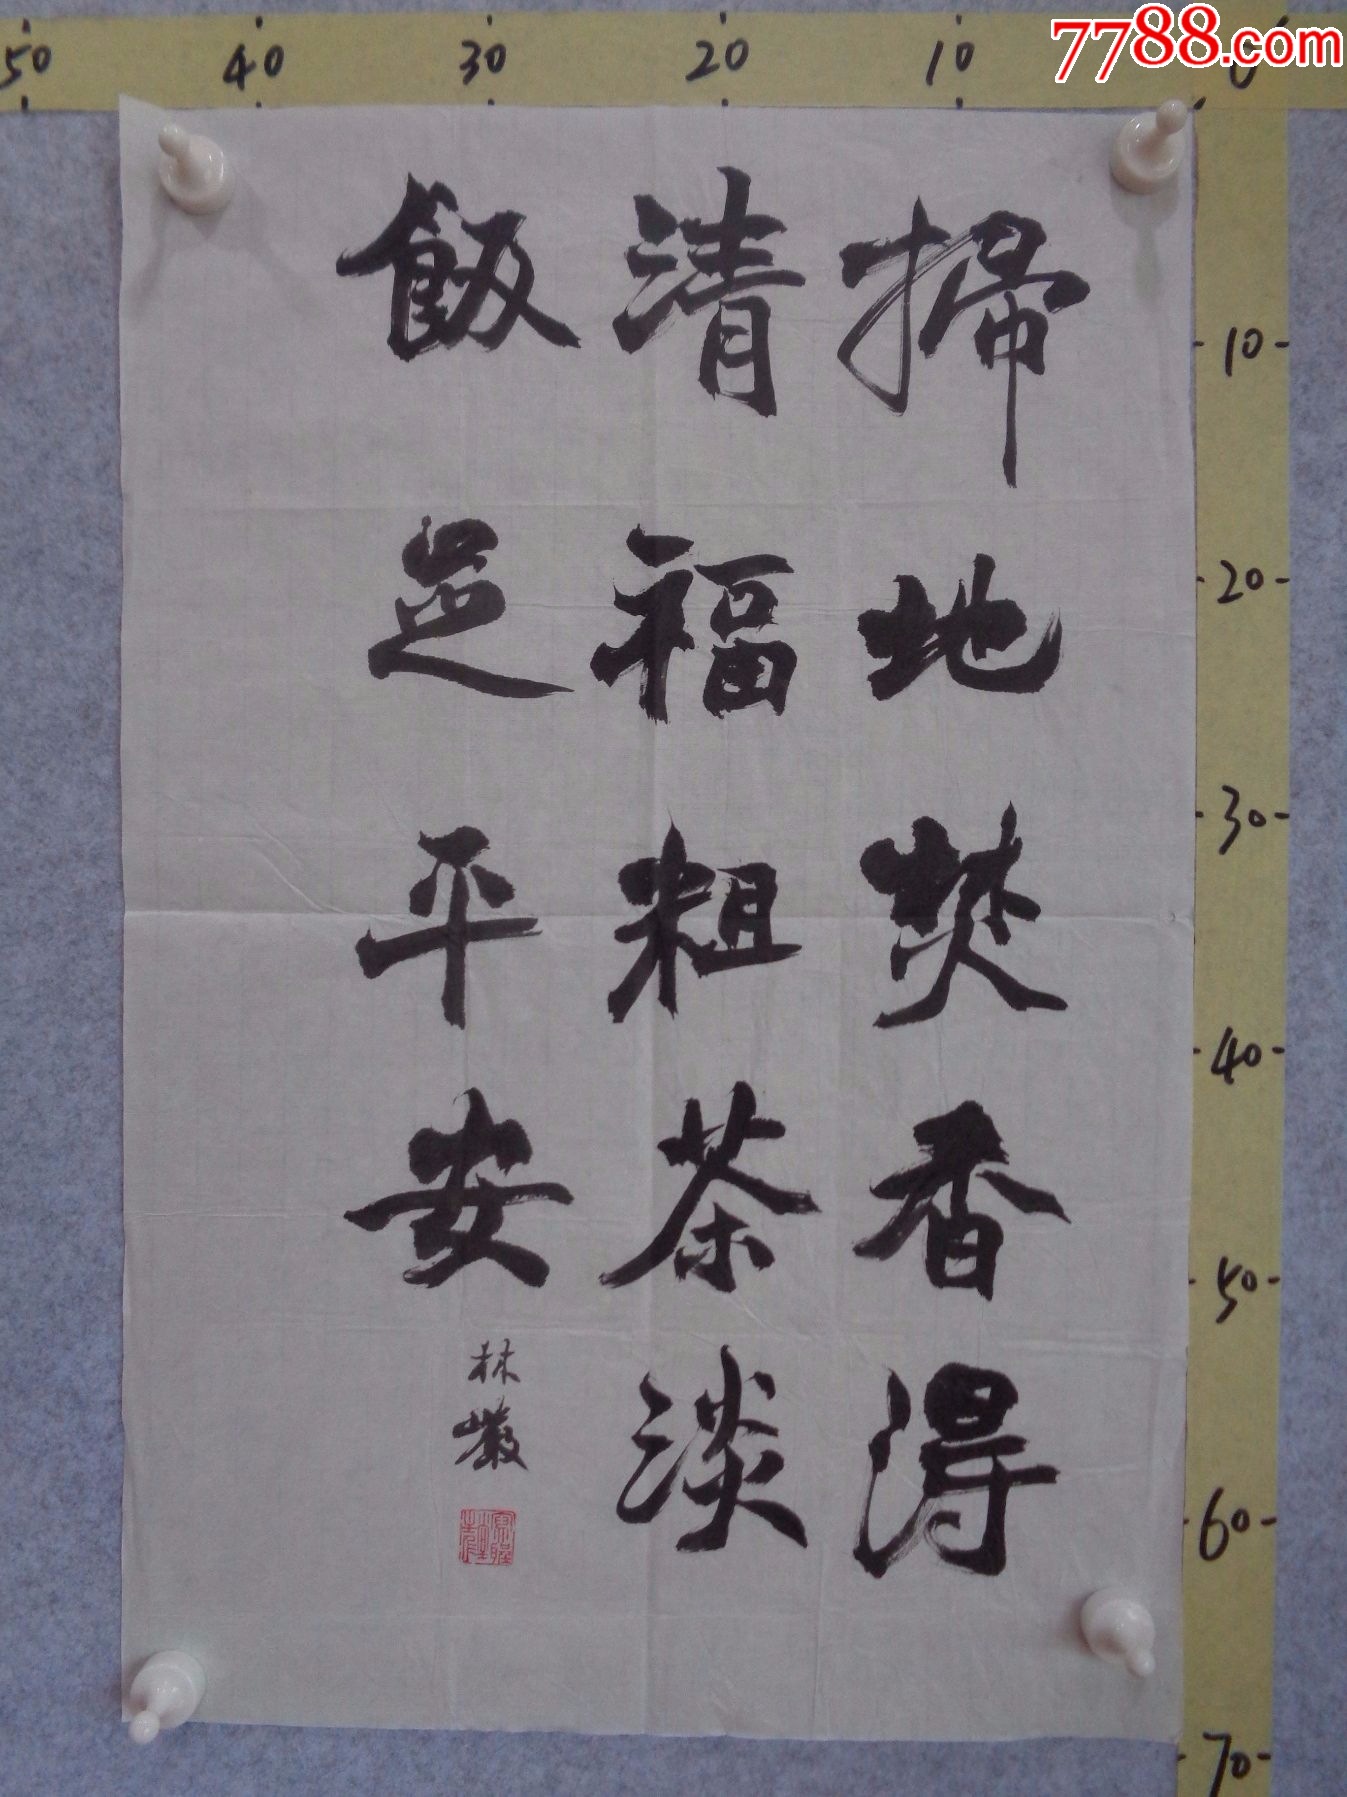 7788.com
50 40 30 20 10 0
掃地焚香得
清福粗茶淡
飯足平安
林巖
10
20
30
40
50
60
70